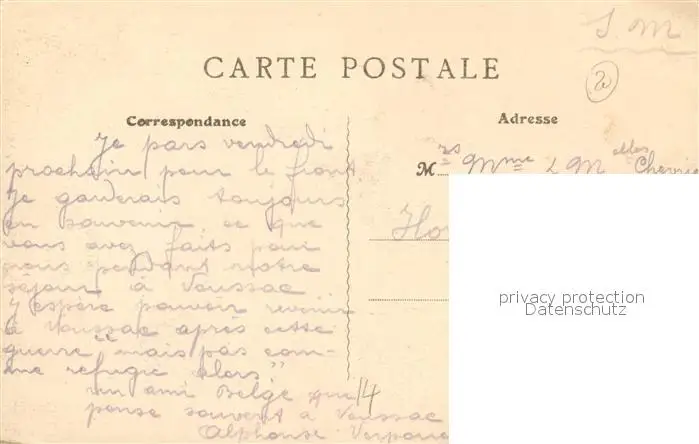 S. M
2
CARTE POSTALE
Correspondance
Adresse
Je pars vendredi
prochain pour le front.
Je garderais toujours
en souvenir, ce que
vous avez faits pour
nous pendant notre
séjour à Voussac
J'espère pouvoir revenir
à Voussac après cette
guerre "mais pas com-
me refugie alors."
un ami Belge que
pense souvent à Voussac
Alphonse
14
M rs Mme & M elles
privacy protection
Datenschutz